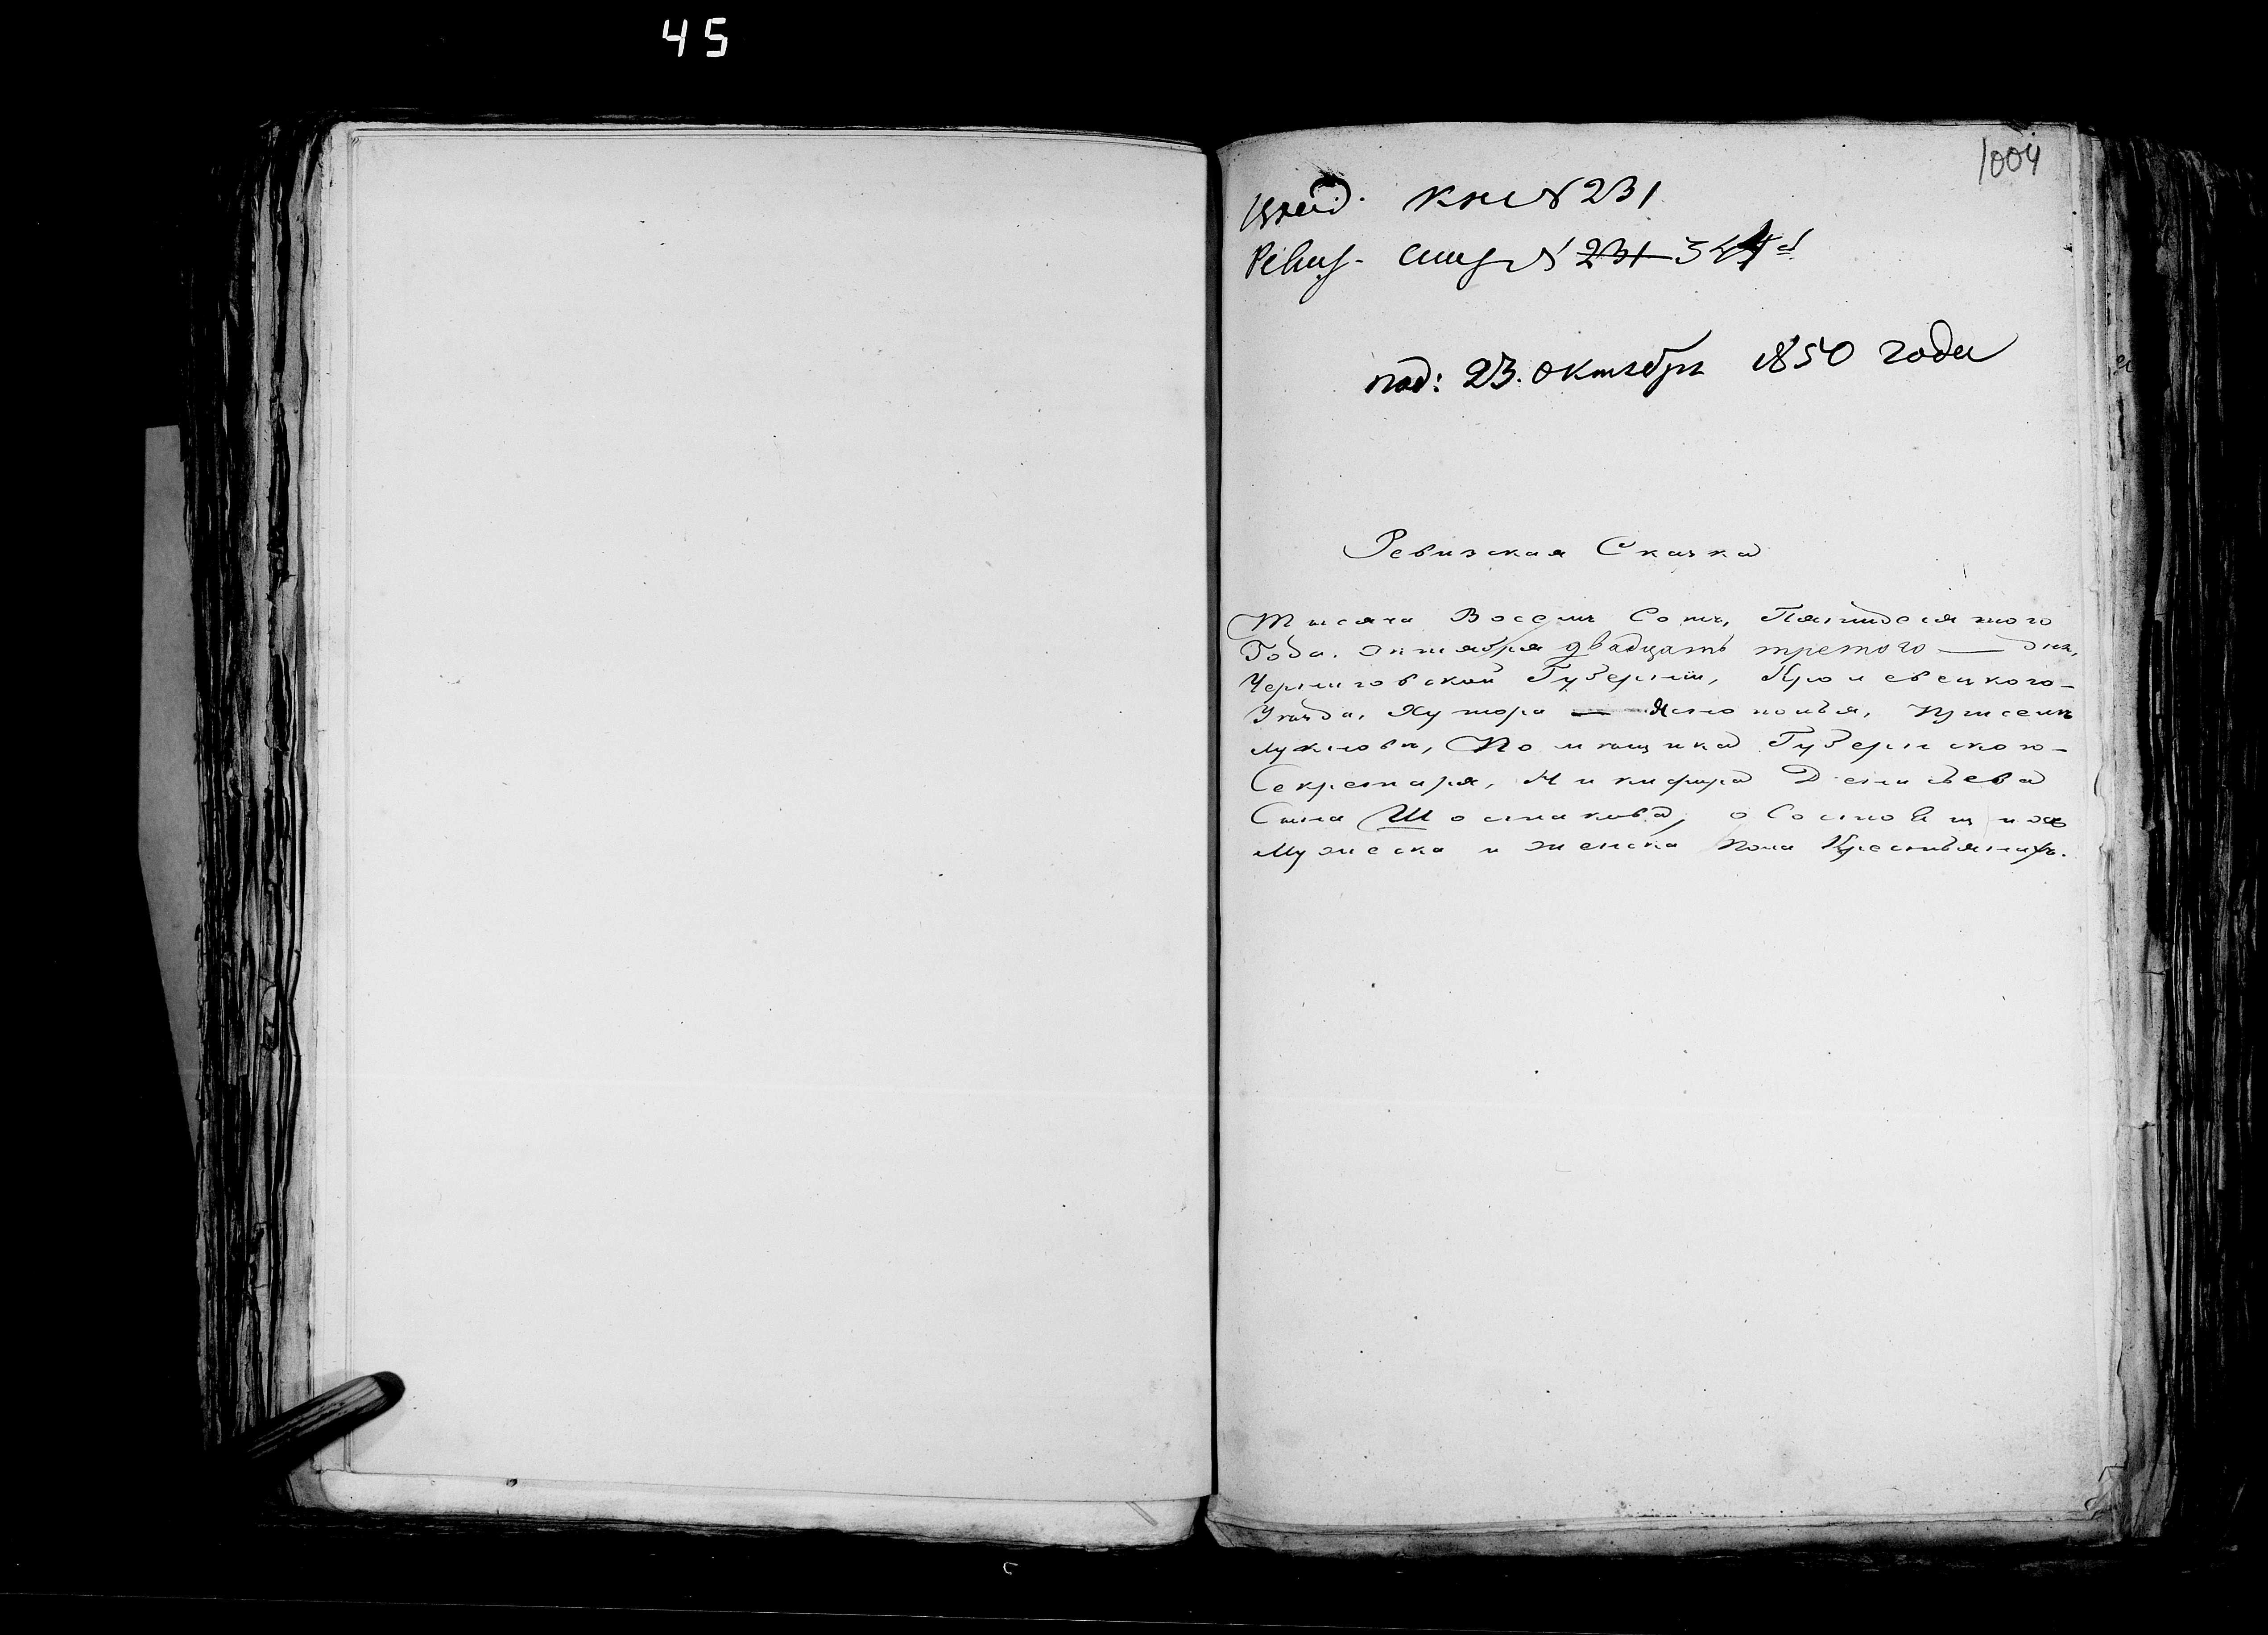 45
1004
кн № 231
Ревиз. спис № 231 344
под: 23. октября 1850 года
Ревизская Сказка
Тысяча Восемь Сотъ Пятидесятого
Года. Октября двадцать третого — дня,
Черниговской Губерніи, Кролевецкого
Уезда, Хутора — Яснополья, при селе
Лукнова, Помещика Губернского
Секретаря, Никифора Дементьева
Сына Шостакова, о Состоящихъ
Мужеска и женска пола Крестьянахъ.